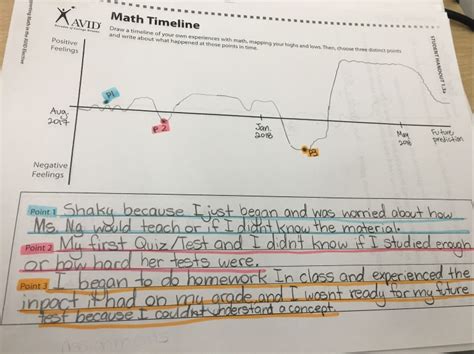 AVID
Math Timeline
Draw a timeline of your own experiences with math, mapping your highs and lows. Then, choose three distinct points
and write about what happened at those points in time.
STUDENT HANDOUT 1.3a
Positive
Feelings
P1
Aug.
2017
P2
Jan.
2018
P3
May
2018
Future
prediction
Negative
Feelings
Point 1 Shaky because I just began and was worried about how
Ms. Ng would teach or if I didnt know the material.
Point 2 My first Quiz/Test and I didnt know if I studied enough
or how hard her tests were.
Point 3 I began to do homework In class and experienced the
inpact it had on my grade, and I wasnt ready for my future
test because I couldnt understand a concept.